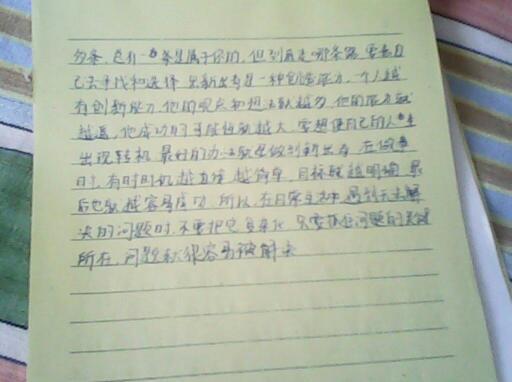 多条，总有一条是属于你的，但到底走哪条路，要靠自
己去寻找和选择。出新出奇是一种创造能力，一个人越
有创新能力，他的观点和想法就越多，他的能力就
越高，他成功的可能性就越大。要想使自己的人生
出现转机，最好的办法就是做到新出奇。在做事
时，有时时机越直接越简单，目标就越明确，最
后也就越容易成功。所以，在日常生活中遇到无法解
决的问题时，不要把它复杂化，只要抓住问题的关键
所在，问题就很容易被解决